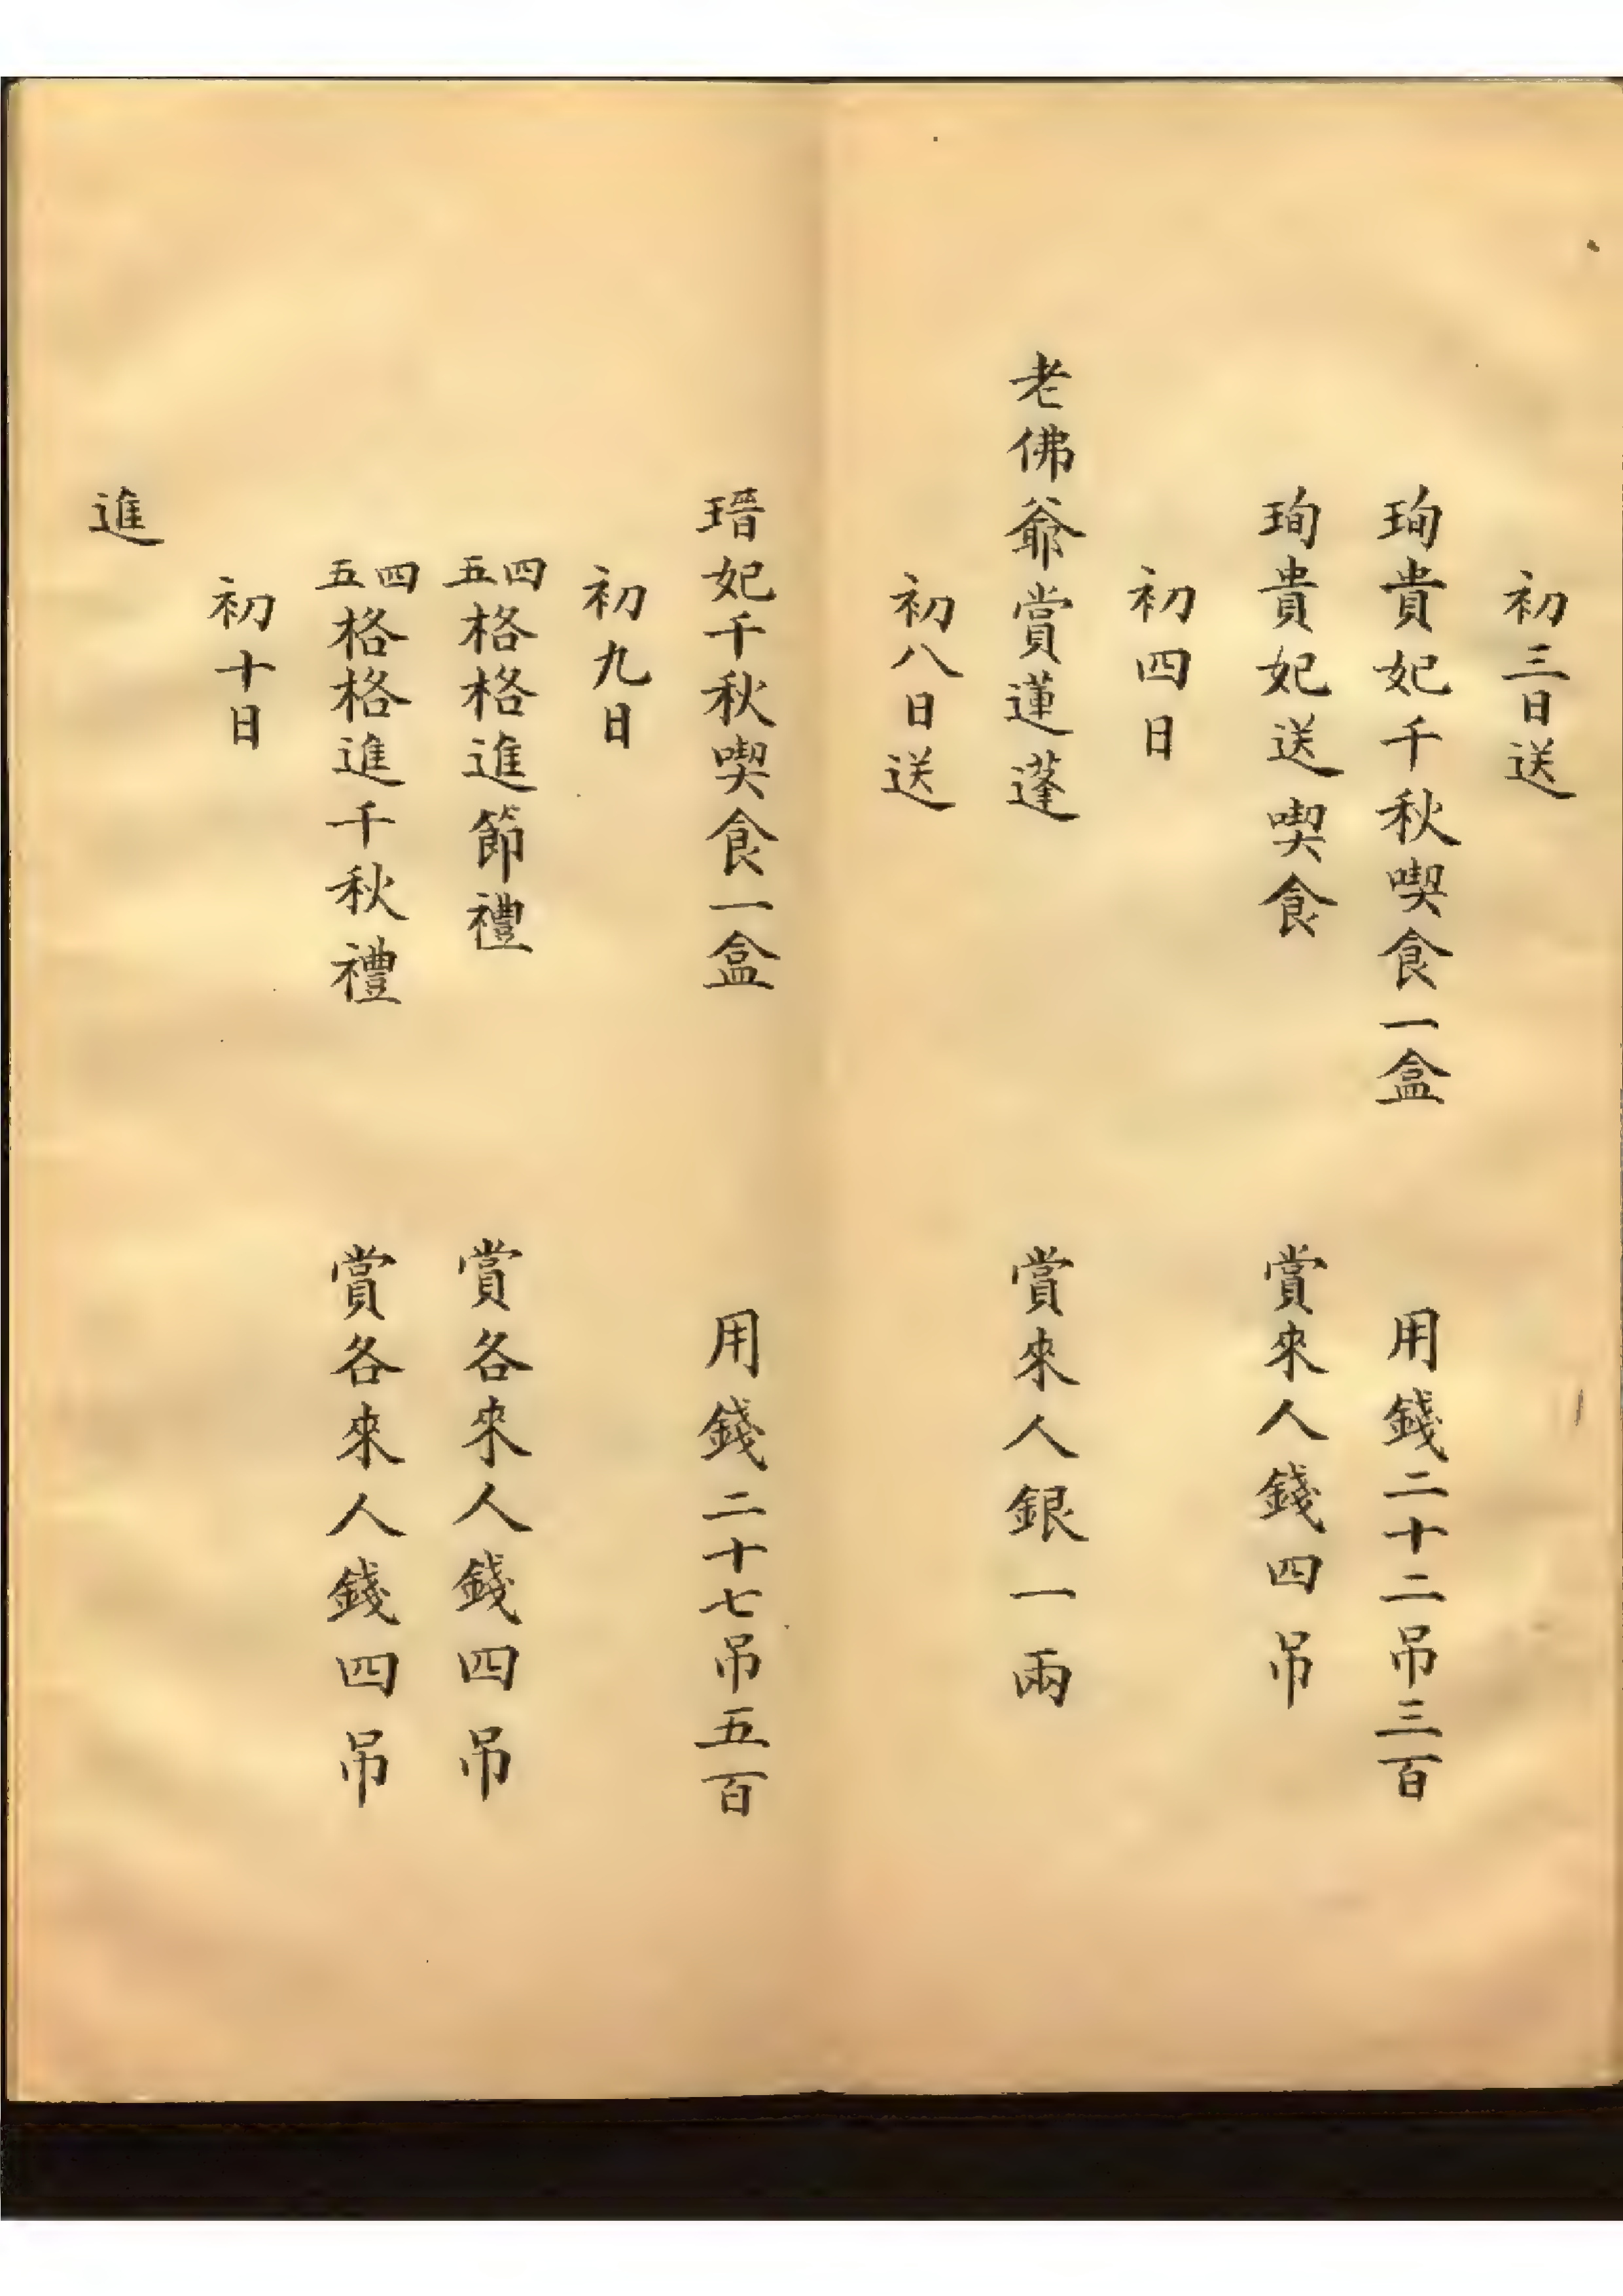 初三日送
珣貴妃千秋喫食一盒　用錢二十二吊三百
珣貴妃送喫食　賞來人錢四吊
初四日
老佛爺賞蓮蓬　賞來人銀一兩
初八日送
瑨妃千秋喫食一盒　用錢二十七吊五百
初九日
四五格格進節禮　賞各來人錢四吊
四五格格進千秋禮　賞各來人錢四吊
初十日
進